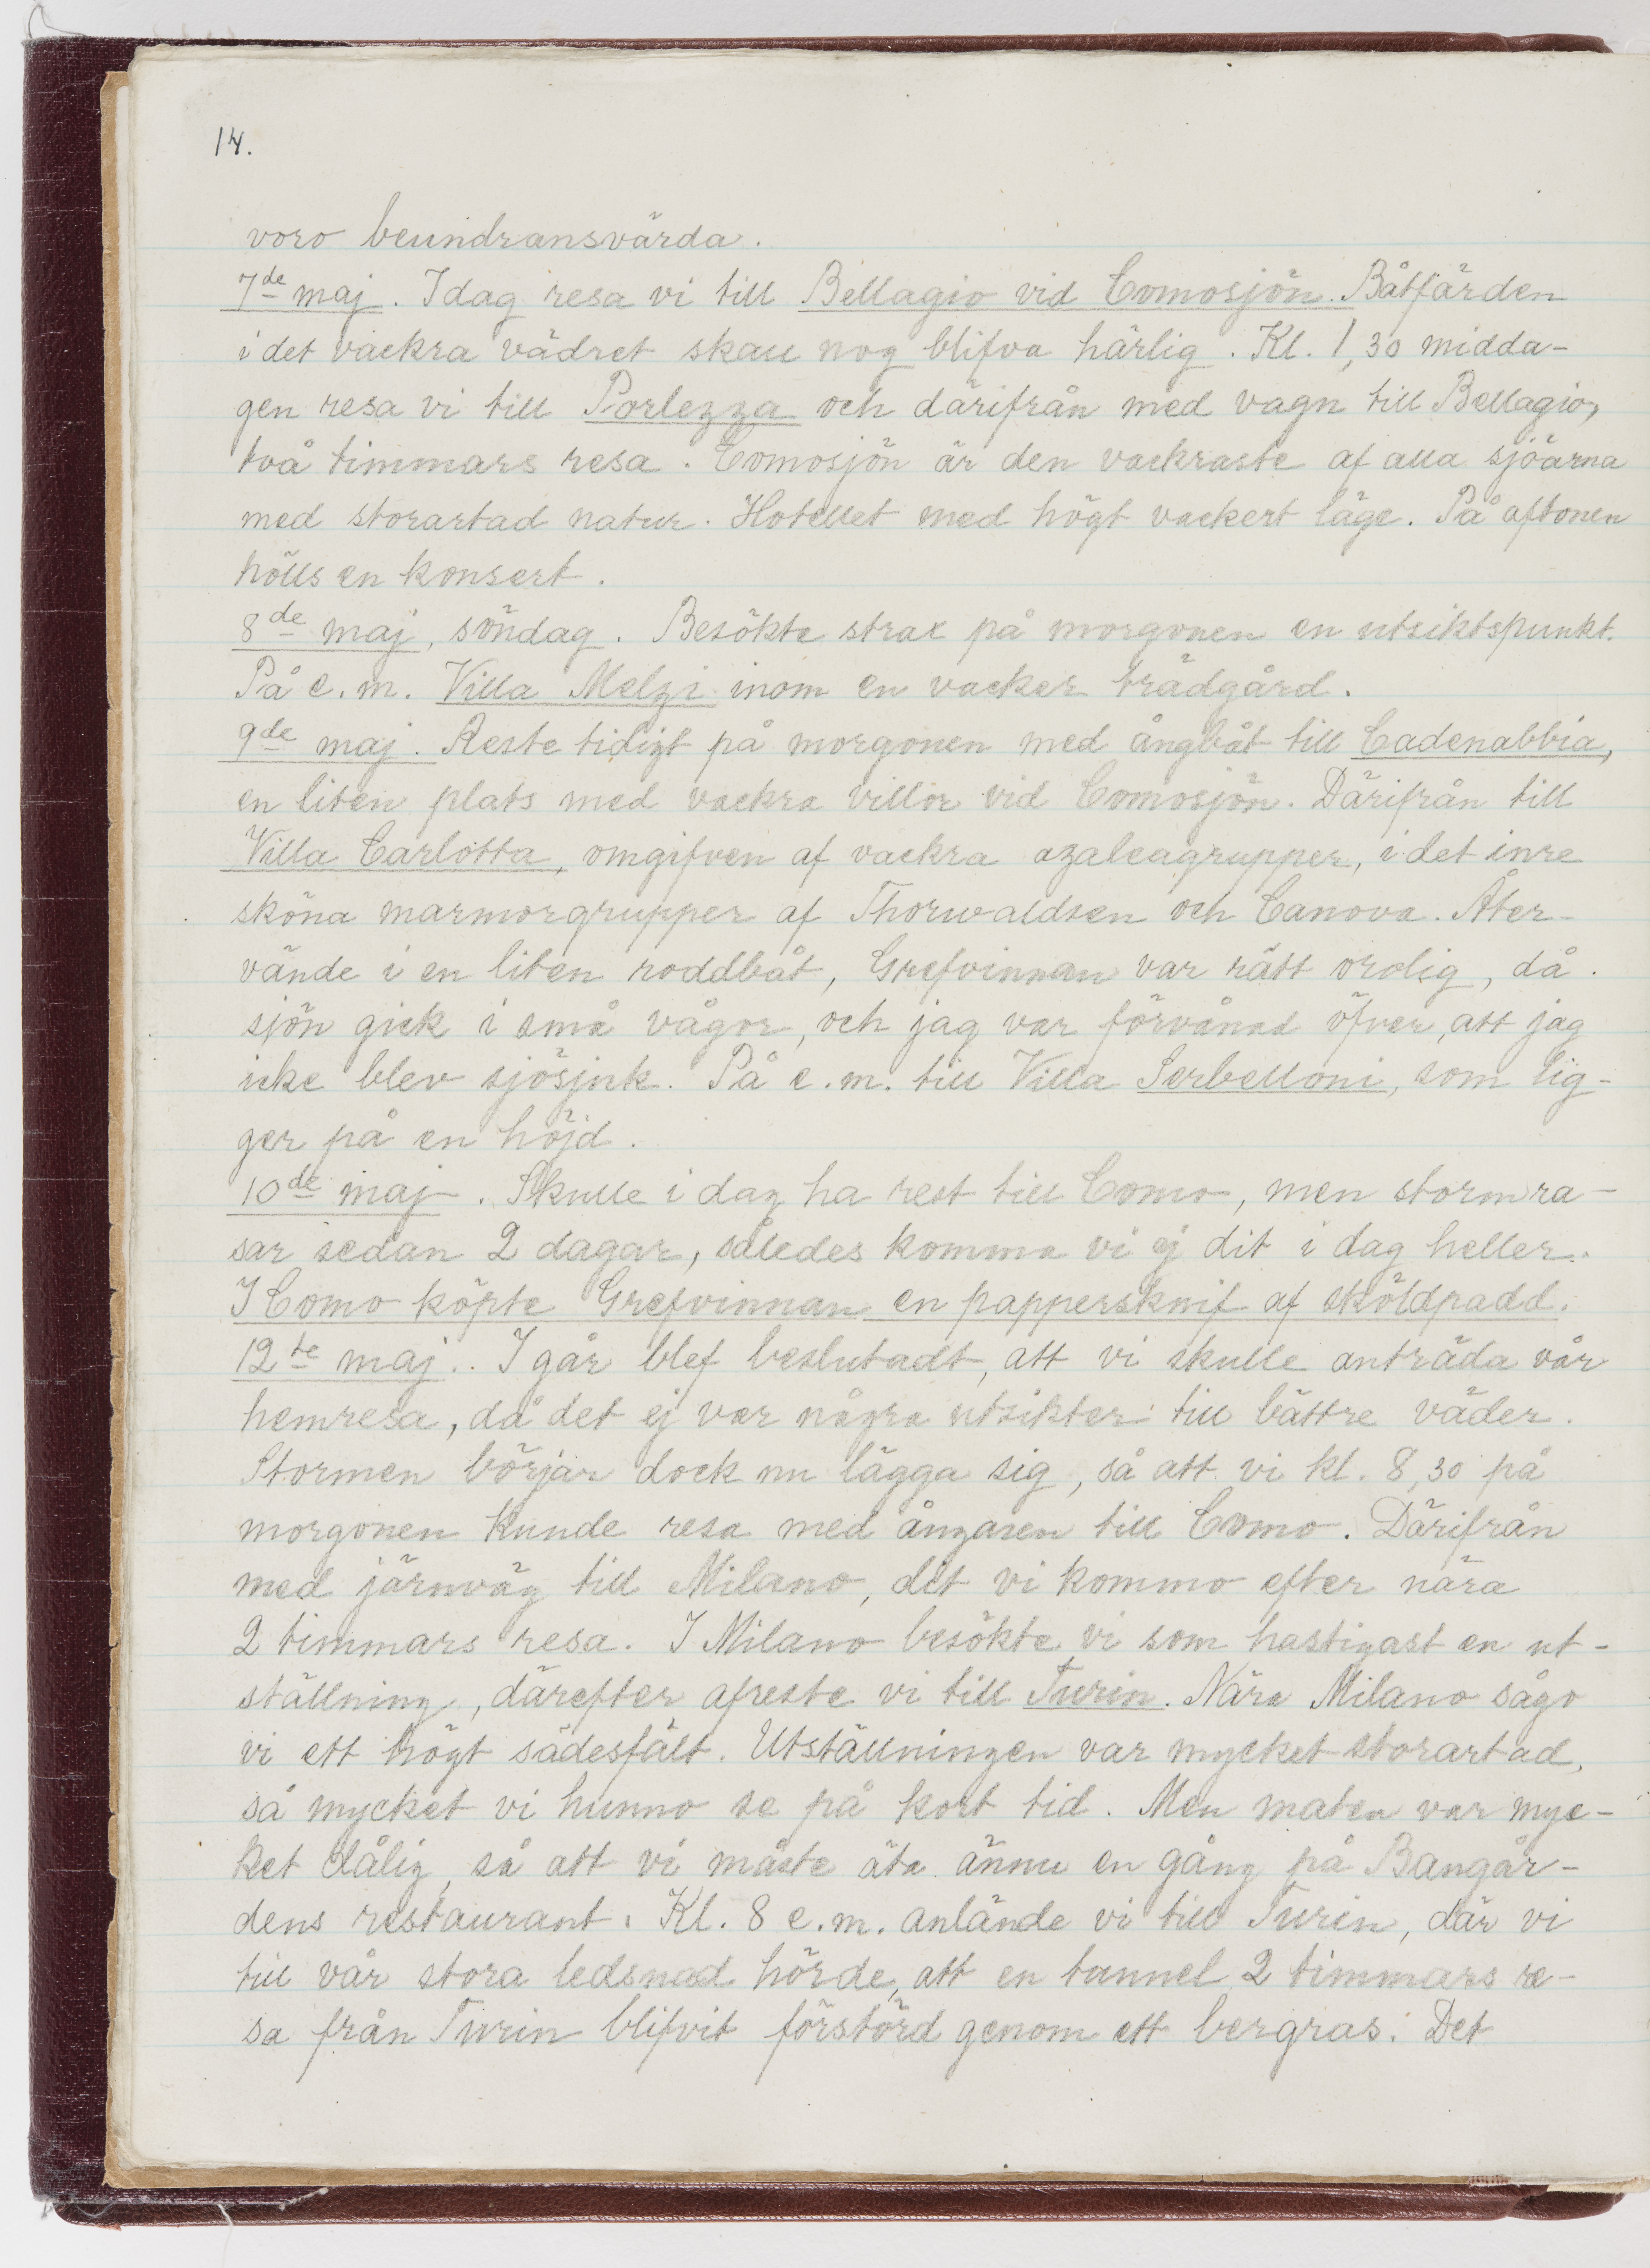 14.
voro beundransvärda.
7de maj. Idag resa vi till Bellagio vid Comosjön. Båtfärden
i det vackra vädret skall nog blifva härlig. Kl. 1,30 midda-
gen resa vi till Porlezza och därifrån med vagn till Bellagio,
två timmars resa. Comosjön är den vackraste af alla sjöarna
med storartad natur. Hotellet med högt vackert läge. På aftonen
hölls en konsert.
8de maj, söndag. Besökte strax på morgonen en utsiktspunkt.
På e.m. Villa Melzi inom en vacker trädgård.
9de maj. Reste tidigt på morgonen med ångbåt till Cadenabbia,
en liten plats med vackra villor vid Comosjön. Därifrån till
Villa Carlotta, omgifven af vackra azaleagrupper, i det inre
sköna marmorgrupper af Thorwaldsen och Canova. Åter-
vände i en liten roddbåt, Grefvinnan var rätt orolig, då
sjön gick i små vågor, och jag var förvånad öfver, att jag
icke blev sjösjuk. På e.m. till Villa Serbelloni, som lig-
ger på en höjd.
10de maj. Skulle i dag ha rest till Como, men storm ra-
sar sedan 2 dagar, således komma vi ej dit i dag heller.
I Como köpte Grefvinnan en pappersknif af sköldpadd.
12te maj. I går blef beslutadt, att vi skulle anträda vår
hemresa, då det ej var några utsikter till bättre väder.
Stormen börjar dock nu lägga sig, så att vi kl. 8,30 på
morgonen kunde resa med ångaren till Como. Därifrån
med järnväg till Milano, dit vi kommo efter nära
2 timmars resa. I Milano besökte vi som hastigast en ut-
ställning, därefter afreste vi till Turin. Nära Milano sågo
vi ett högt sädesfält. Utställningen var mycket storartad,
så mycket vi hunno se på kort tid. Men maten var myc-
ket dålig, så att vi måste äta ännu en gång på Bangår-
dens restaurant. Kl. 8 e.m. anlände vi till Turin, där vi
till vår stora ledsnad hörde, att en tunnel 2 timmars re-
sa från Turin blifvit förstörd genom ett bergras. Det